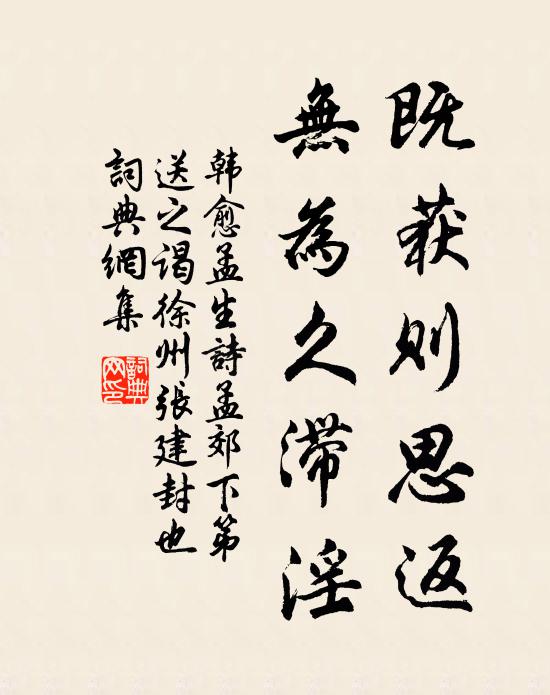 既获则思返
無為久滞淫
韩愈孟生詩孟郊下第
送之谒徐州張建封也
詞典網集
詞典
网印